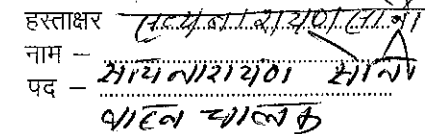 हस्ताक्षर सत्य नारायण सोनी
नाम – सत्य नारायण सोनी
पद – वाहन चालक